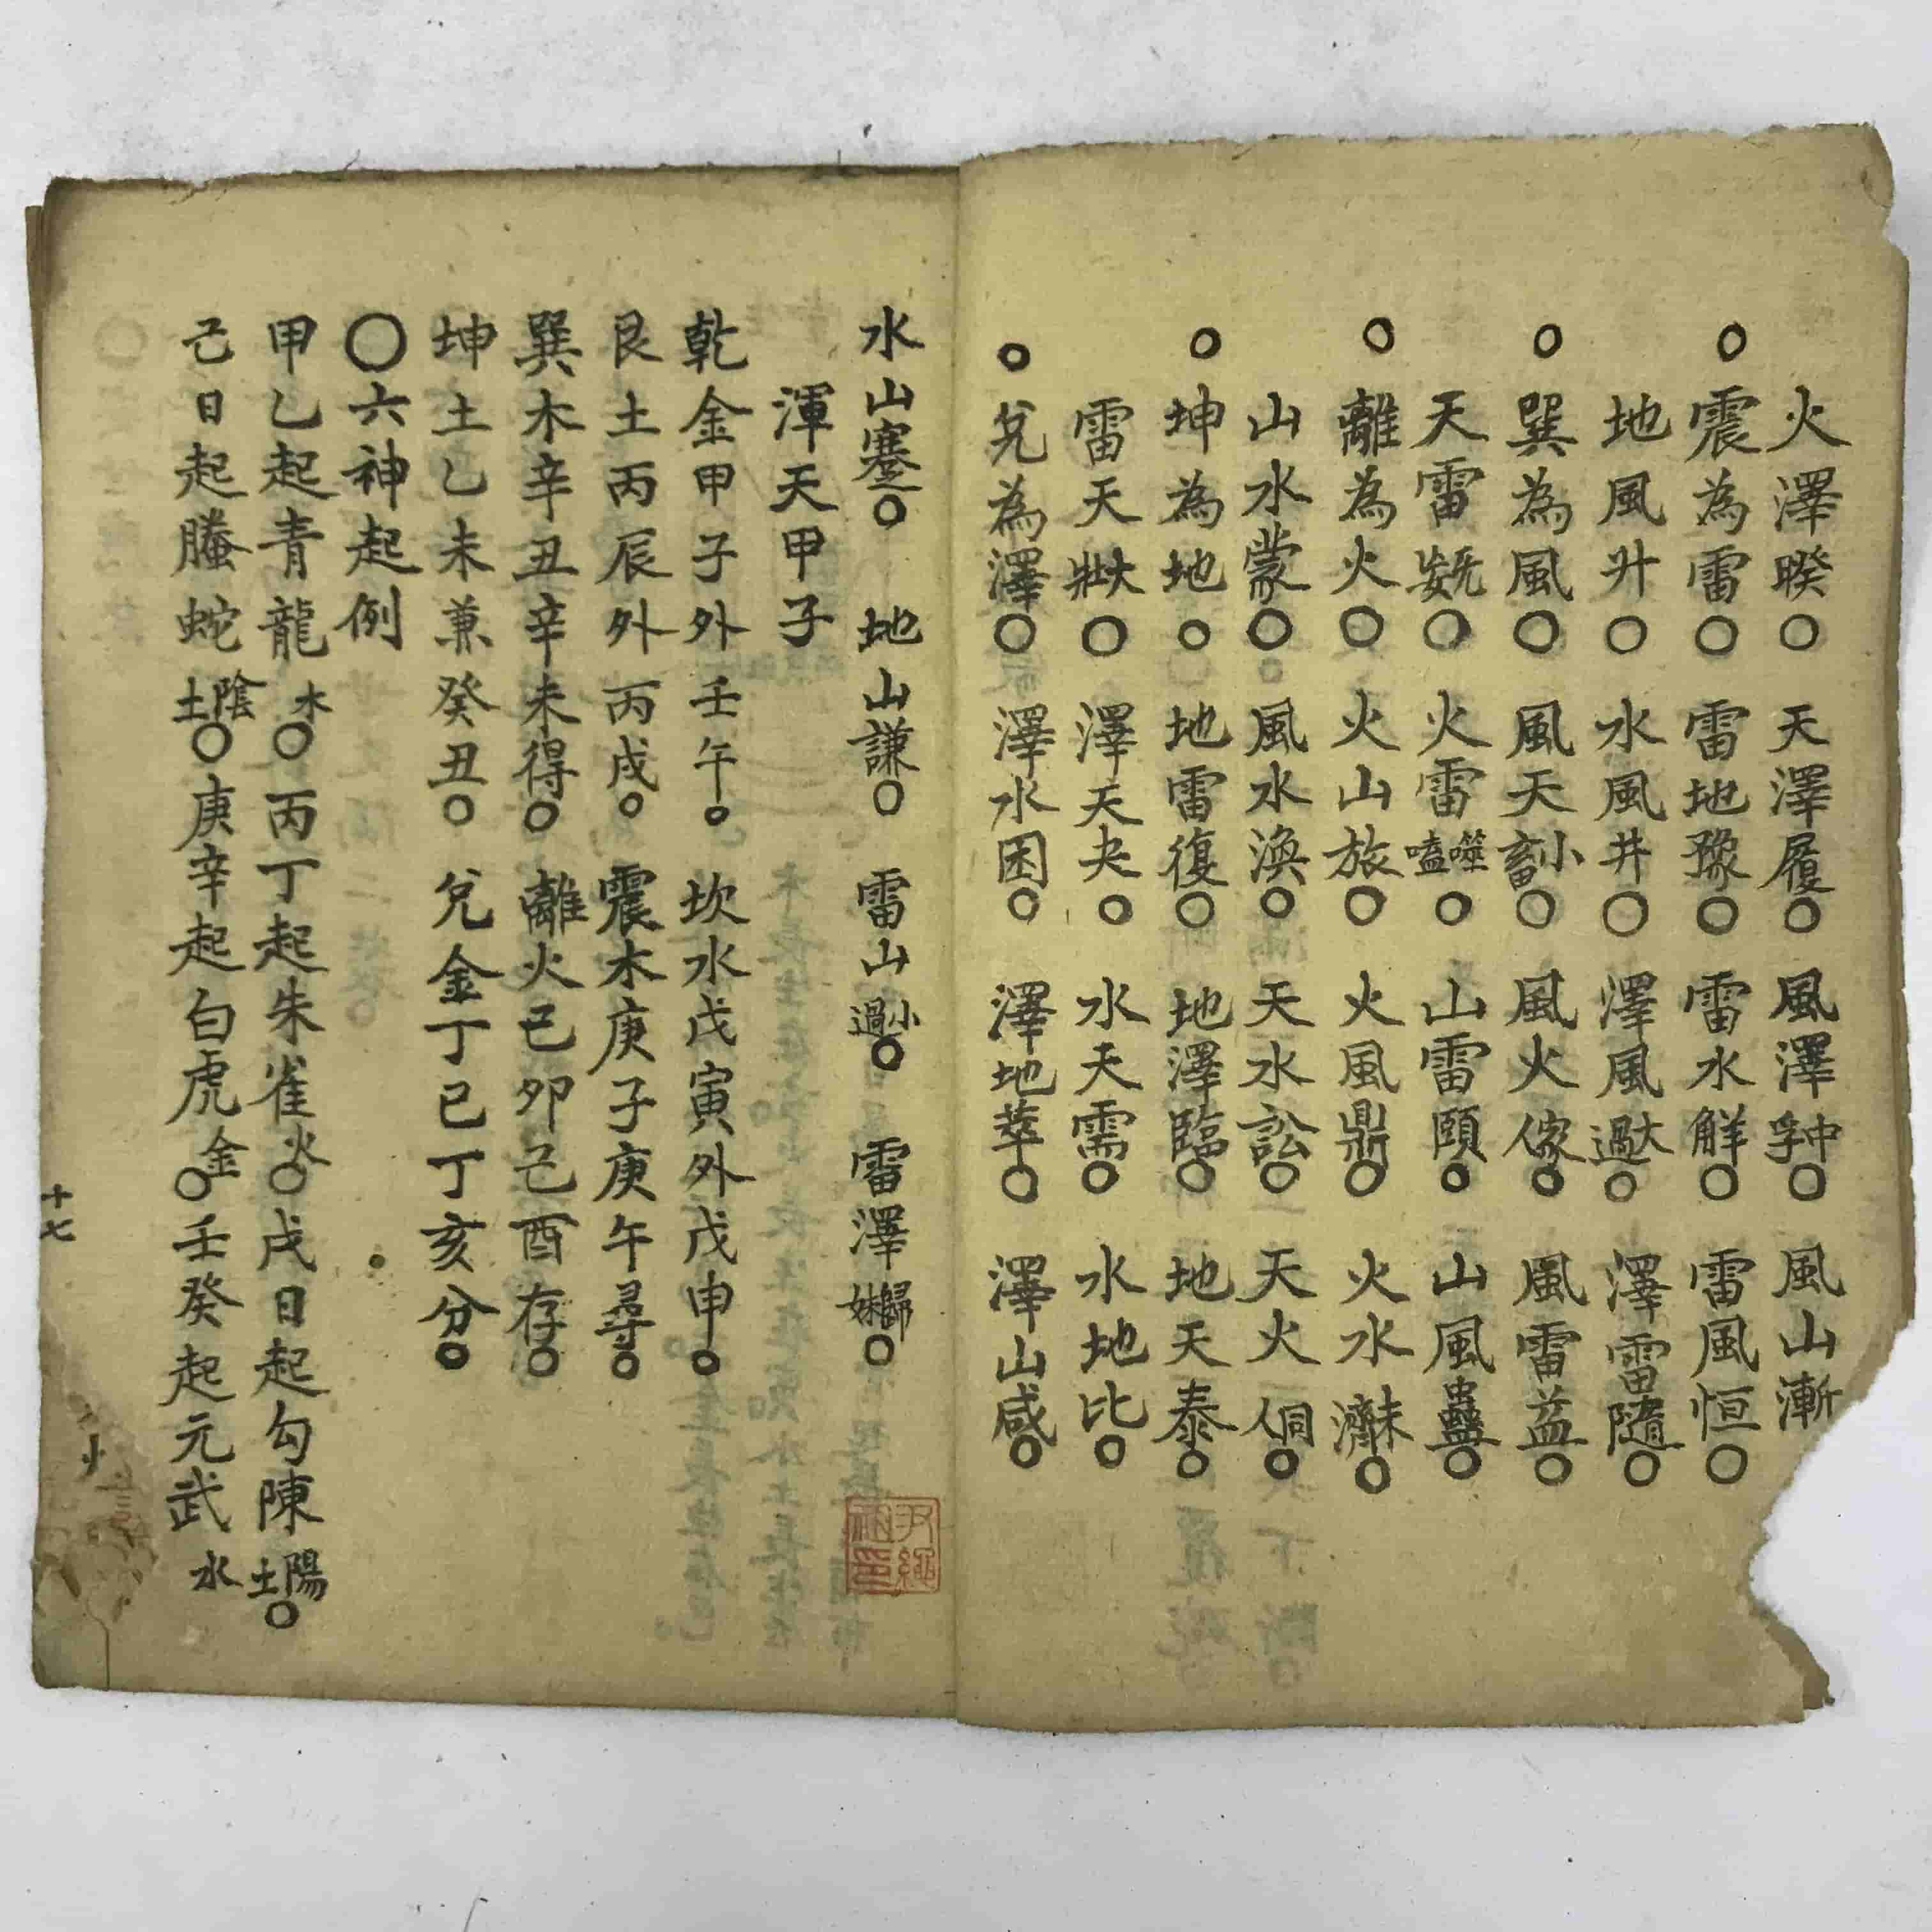 火澤睽○　天澤履○　風澤中孚○　風山漸
○震為雷○　雷地豫○　雷水解○　雷風恒○
地風升○　水風井○　澤風大過○　澤雷隨○
○巽為風○　風天小畜○　風火家人○　風雷益○
天雷无妄○　火雷噬嗑○　山雷頤○　山風蠱○
○離為火○　火山旅○　火風鼎○　火水未濟○
山水蒙○　風水渙○　天水訟○　天火同人○
○坤為地○　地雷復○　地澤臨○　地天泰○
雷天大壯○　澤天夬○　水天需○　水地比○
○兌為澤○　澤水困○　澤地萃○　澤山咸○
水山蹇○　地山謙○　雷山小過○　雷澤歸妹○
渾天甲子
乾金甲子外壬午○　坎水戊寅外戊申○
艮土丙辰外丙戌○　震木庚子庚午尋○
巽木辛丑辛未得○　離火己卯己酉存○
坤土乙未兼癸丑○　兌金丁巳丁亥分○
○六神起例
甲乙起青龍木○丙丁起朱雀火○戊日起勾陳陽土○
己日起螣蛇陰土○庚辛起白虎金○壬癸起元武水
十七